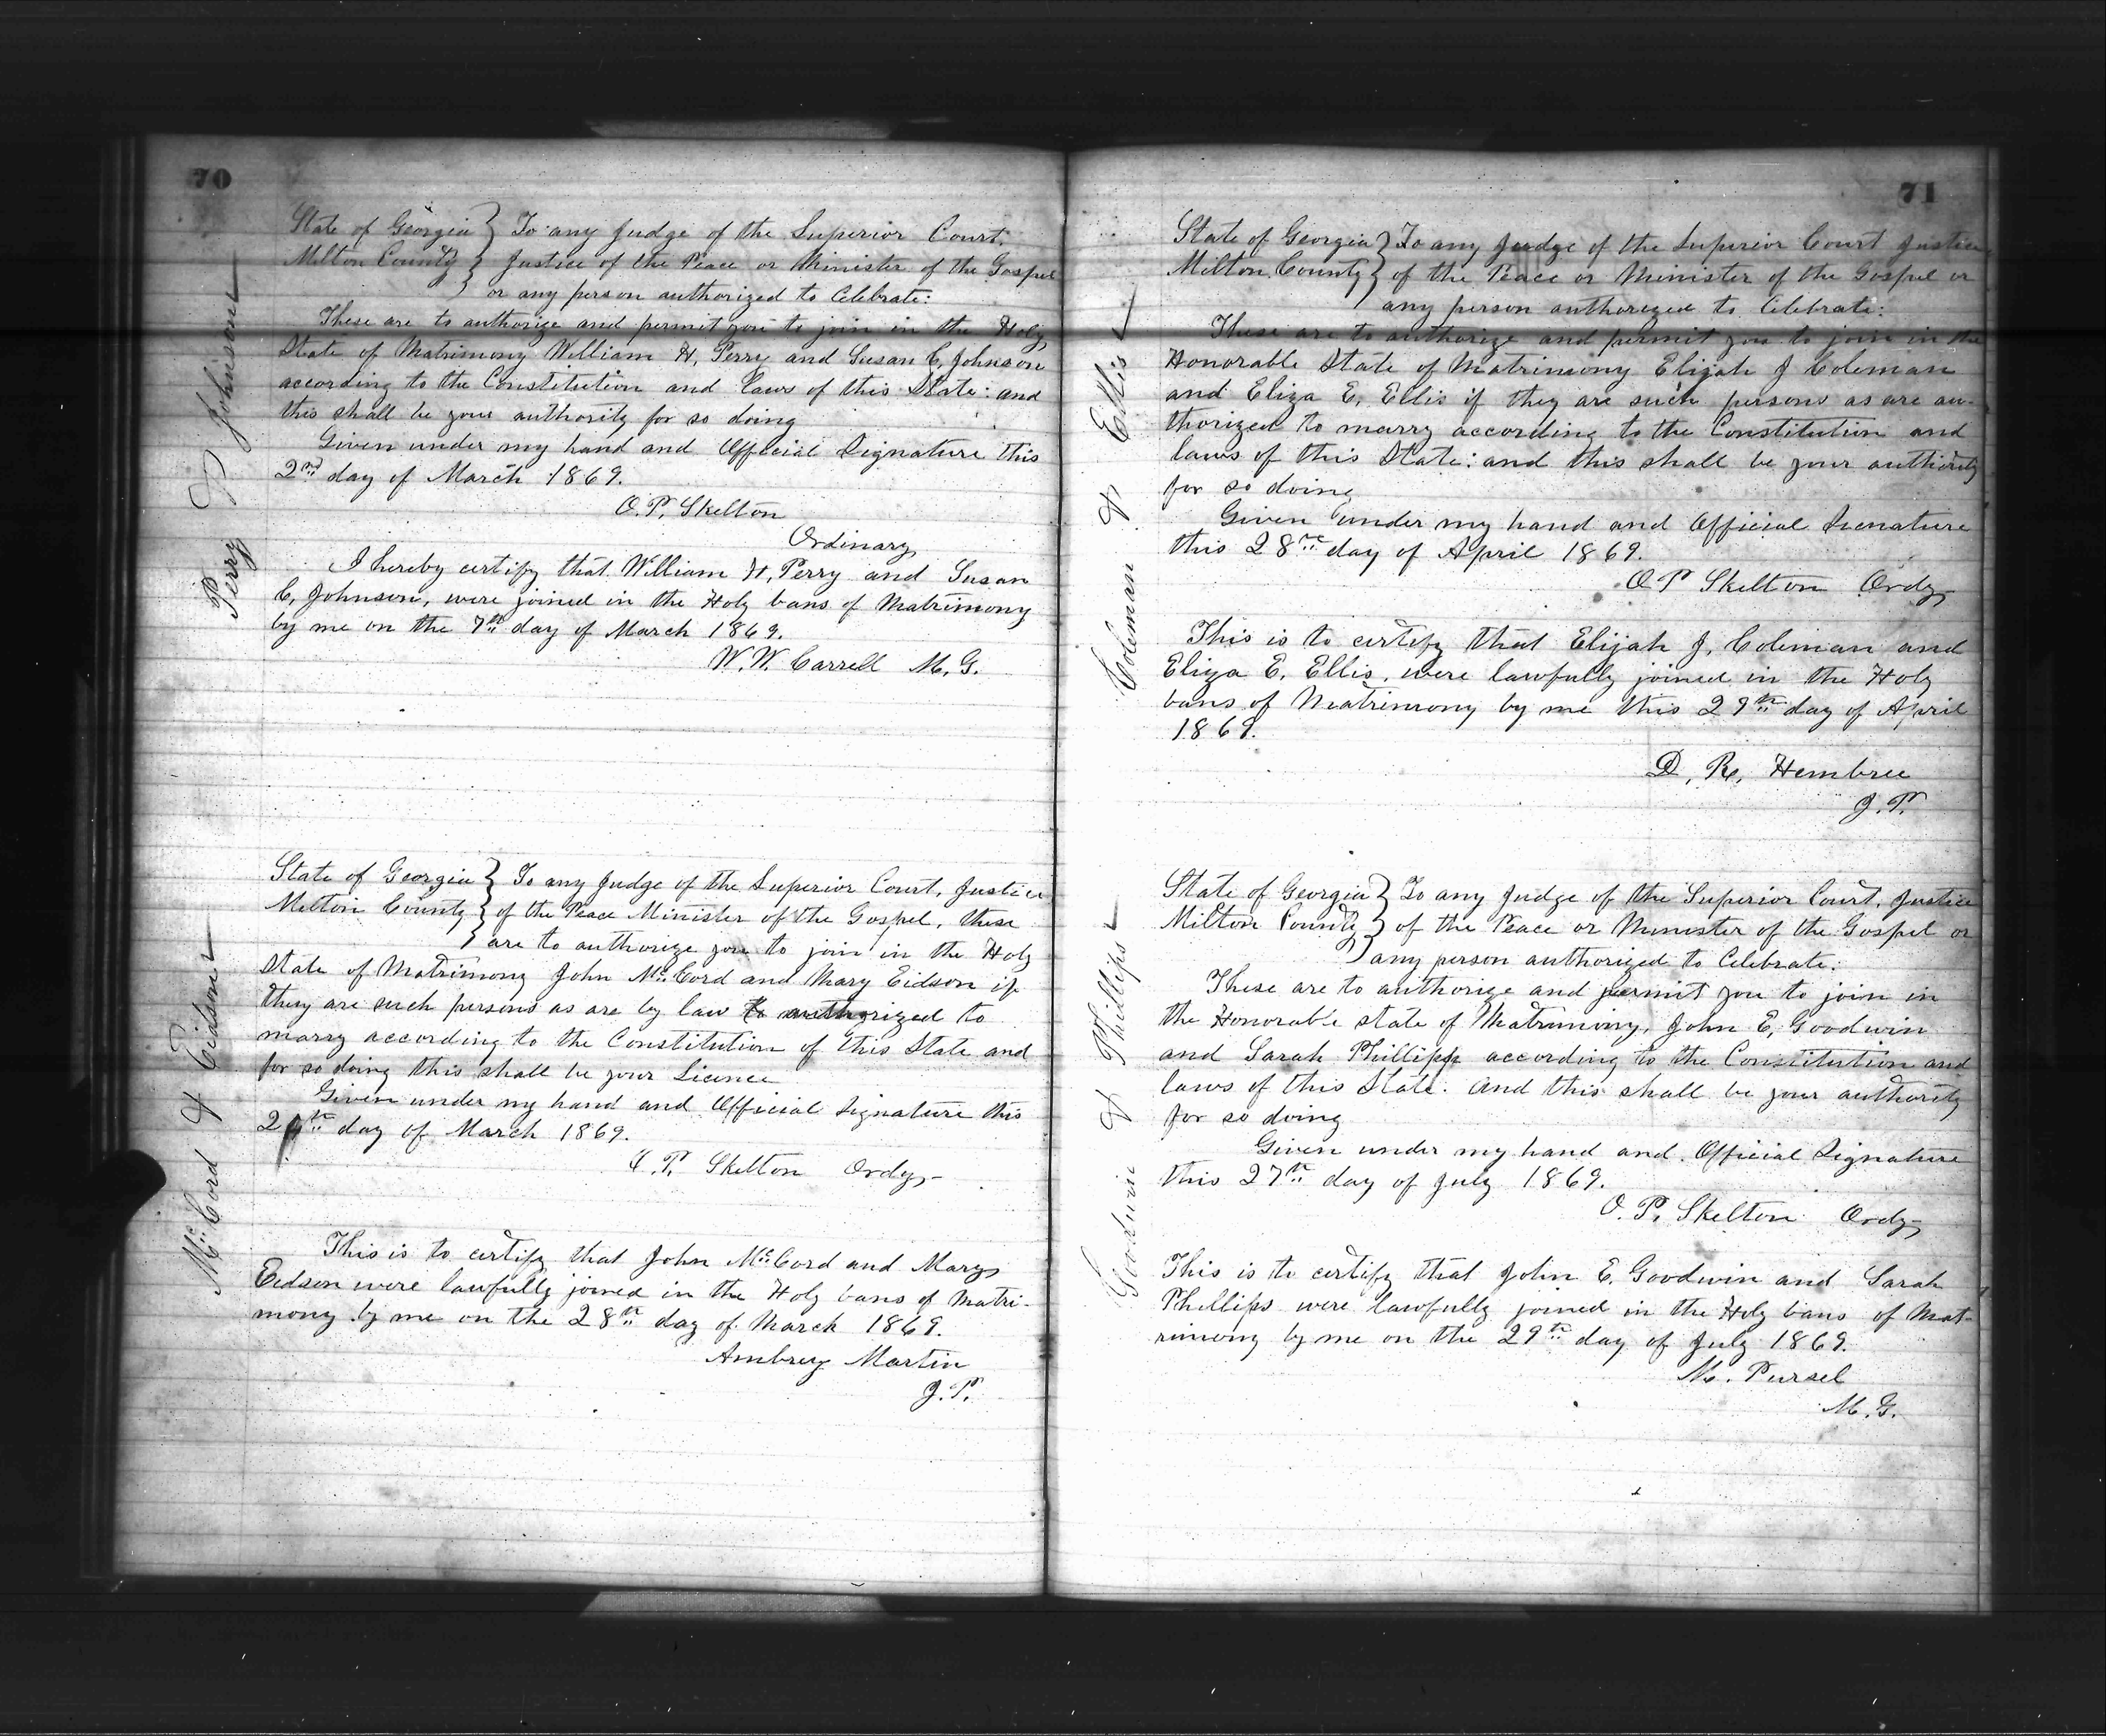 70
Perry & Johnson
State of Georgia } To any Judge of the Superior Court,
Milton County } Justice of the Peace or Minister of the Gospel
or any person authorized to Celebrate:
These are to authorize and permit you to join in the Holy
State of Matrimony William H, Perry and Susan C, Johnson
according to the Constitution and laws of this State: and
this shall be your authority for so doing
Given under my hand and Official Signature this
2nd day of March 1869.
O. P. Skelton
Ordinary
I hereby certify that William H, Perry and Susan
C, Johnson, were joined in the Holy bans of Matrimony
by me on the 7th day of March 1869.
W. W. Carrell M. G.
McCord & Eidson
State of Georgia } To any Judge of the Superior Court, Justice
Milton County } of the Peace Minister of the Gospel, these
are to authorize you to join in the Holy
State of Matrimony John McCord and Mary Eidson if
they are such persons as are by law authorized to
marry according to the Constitution of this State and
for so doing this shall be your Licence
Given under my hand and Official Signature this
day of March 1869.
O. P. Skelton Ordy
This is to certify that John McCord and Mary
Eidson were lawfully joined in the Holy bans of Matri-
mony by me on the 28th day of March 1869.
Ambrey Martin
J. P.
71
Coleman & Ellis
State of Georgia } To any Judge of the Superior Court Justice
Milton County } of the Peace or Minister of the Gospel or
any person authorized to Celebrate:
These are to authorize and permit you to join in the
Honorable State of Matrimony Elijah J Coleman
and Eliza E, Ellis if they are such persons as are au-
thorized to marry according to the Constitution and
laws of this State: and this shall be your authority
for so doing
Given under my hand and Official Signature
this 28th day of April 1869.
O P Skelton Ordy
This is to certify that Elijah J, Coleman and
Eliza E. Ellis, were lawfully joined in the Holy
bans of Matrimony by me this 29th day of April
1869.
D, R, Hembree
J. P.
Goodwin & Phillips
State of Georgia } To any Judge of the Superior Court, Justice
Milton County } of the Peace or Minister of the Gospel or
any person authorized to Celebrate:
These are to authorize and permit you to join in
the Honorable state of Matrimony, John E, Goodwin
and Sarah Phillips according to the Constitution and
laws of this State. And this shall be your authority
for so doing
Given under my hand and Official Signature
this 27th day of July 1869.
O. P. Skelton Ordy
This is to certify that John E. Goodwin and Sarah
Phillips were lawfully joined in the Holy bans of Mat-
rimony by me on the 29th day of July 1869.
M. Pursel
M. G.